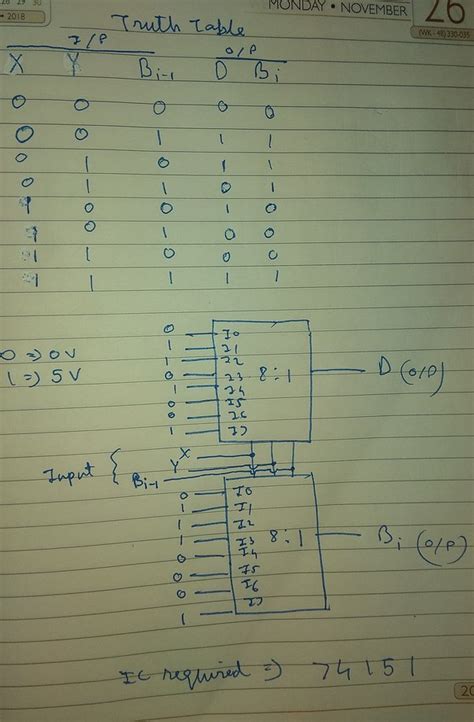 28 29 30
• 2018
MONDAY • NOVEMBER 26
(WK - 48) 330-035
Truth Table
I/P O/P
X Y Bi-1 D Bi
0 0 0 0 0
0 0 1 1 1
0 1 0 1 1
0 1 1 0 1
1 0 0 1 0
1 0 1 0 0
1 1 0 0 0
1 1 1 1 1
0 => 0V
1 => 5V
0 I0
1 I1
1 I2
0 I3
1 I4
0 I5
0 I6
1 I7
8:1
D (O/P)
Input { X
Y
Bi-1
0 I0
1 I1
1 I2
1 I3
0 I4
0 I5
0 I6
1 I7
8:1
Bi (O/P)
IC required => 74151
20